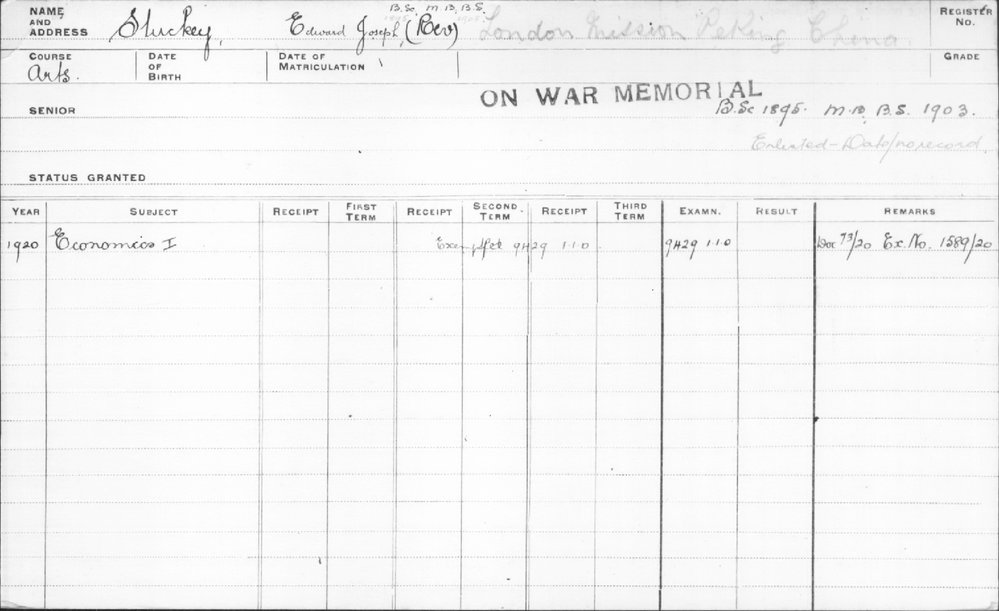 NAME AND ADDRESS Stuckey, Edward Joseph, (Rev) B.Sc. M.B.B.S. London Mission Peking China REGISTER No.
1895 1903
COURSE Arts. DATE OF BIRTH DATE OF MATRICULATION GRADE
ON WAR MEMORIAL
SENIOR B.Sc 1895. M.B, B.S. 1903.
Enlisted - Date/no record.
STATUS GRANTED
YEAR SUBJECT RECEIPT FIRST TERM RECEIPT SECOND TERM RECEIPT THIRD TERM EXAMN. RESULT REMARKS
1920 Economics I 9429 1.1.0 9429 1.1.0 Doc 73/20 Ex. No. 1589/20